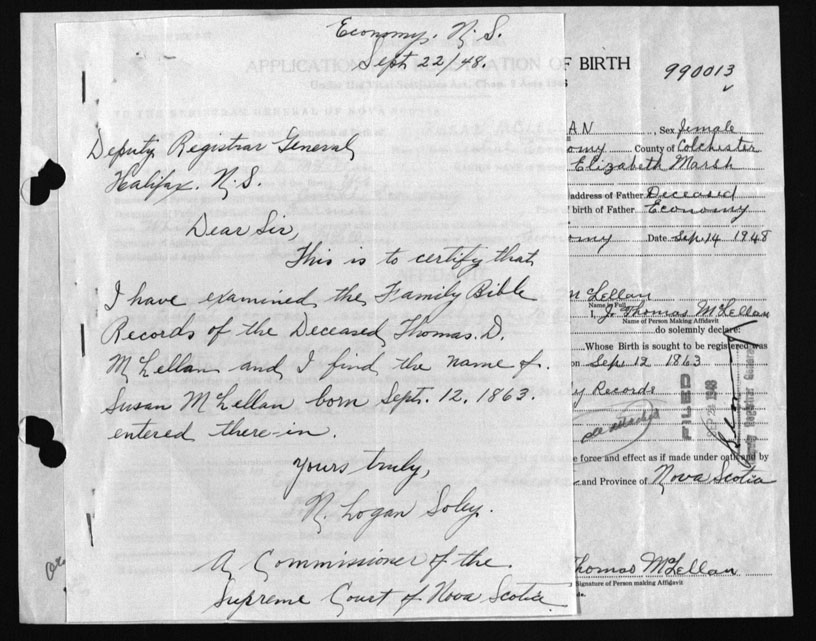 Economy. N. S.
Sept 22/48.
Deputy Registrar General,
Halifax. N. S.
Dear Sir,
This is to certify that
I have examined the Family Bible
Records of the Deceased Thomas. D.
McLellan and I find the name of
Susan McLellan born Sept. 12. 1863.
entered there-in.
Yours truly,
N. Logan Soley.
A Commissioner of the
Supreme Court of Nova Scotia
F BIRTH
990013
AN , Sex female
omy County of Colchester
Elizabeth Marsh
address of Father Deceased
birth of Father Economy
omy Date Sep. 14 1948
McLellan
Name in Full
I, J. Thomas McLellan
Name of Person Making Affidavit
do solemnly declare:
Whose Birth is sought to be registered was
on Sep. 12 1863
ly Records
see attached
FILED
1948
Registrar General
e force and effect as if made under oath and by
and Province of Nova Scotia
Thomas McLellan
Signature of Person making Affidavit